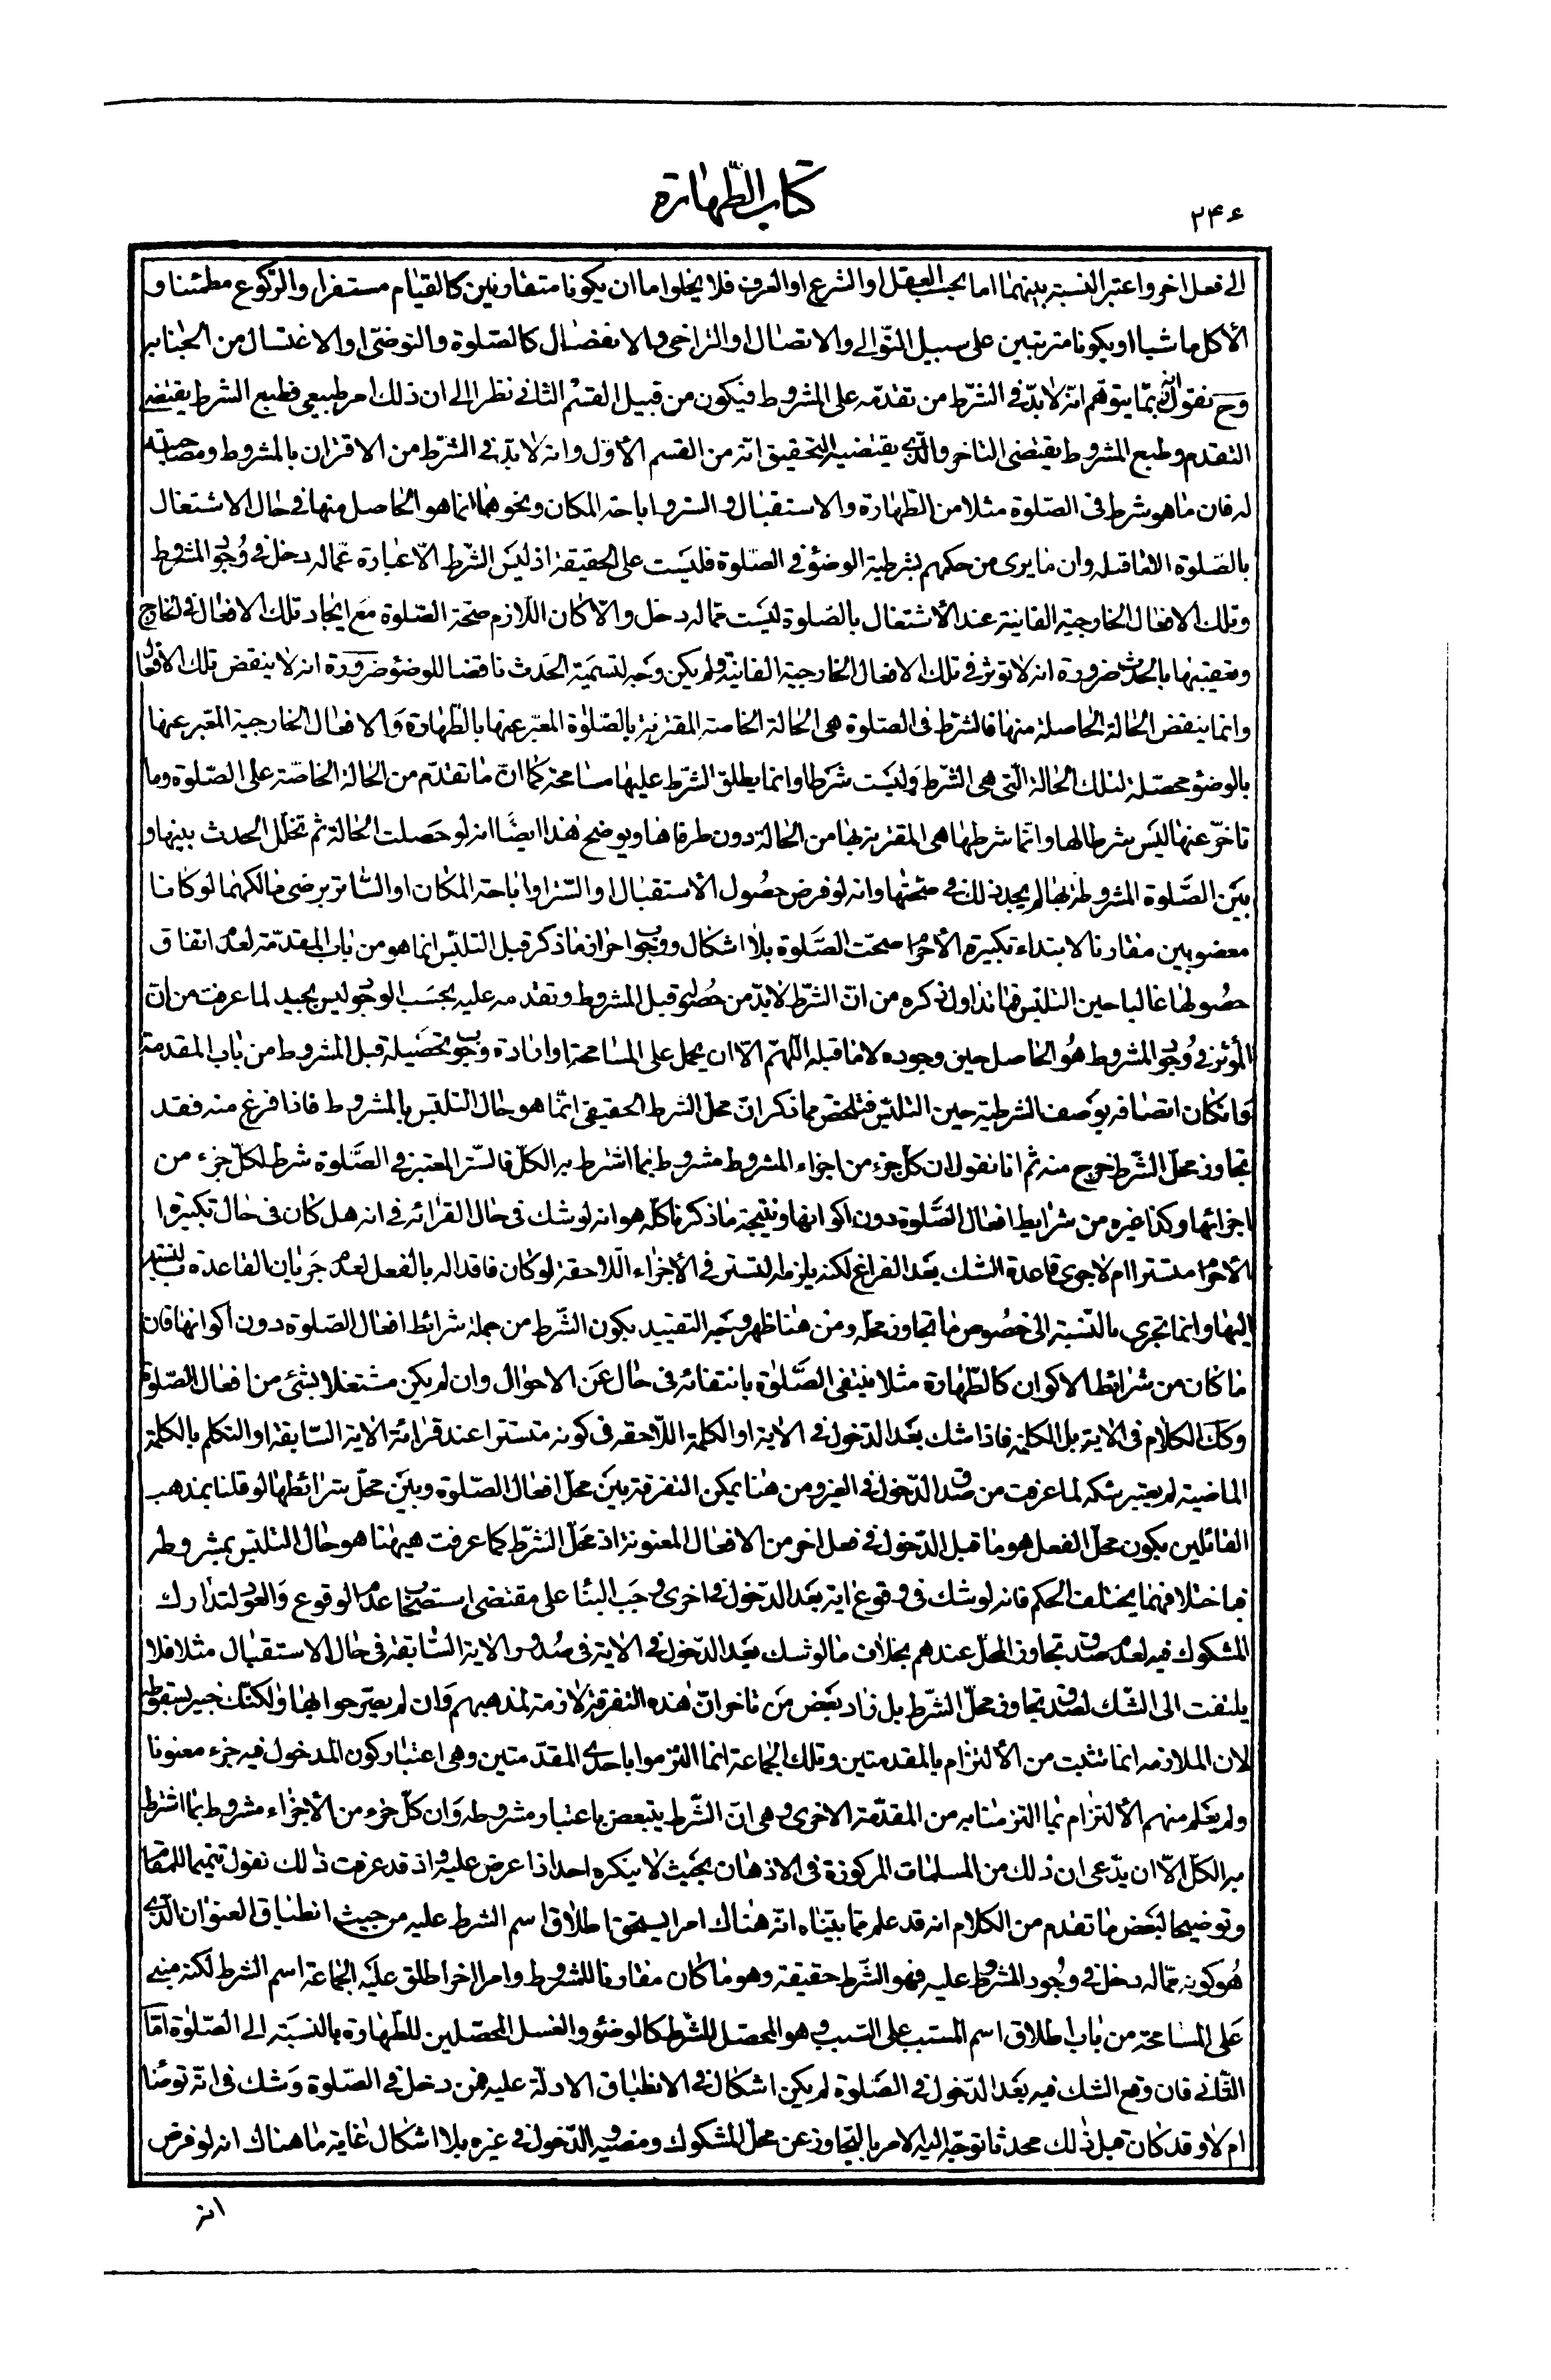 ٢٤۶
كتاب الطّهارة
الى فعل اخر واعتبر النسبة بينهما اما بحسب العقل او الشرع او العرف فلا يخلوا ما ان يكونا متقارنين كالقيام مستقرا والرّكوع مطمئنا و
الأكل ماشيا او يكونا مترتبين على سبيل التّوالى والاتصال او التراخى والانفصال كالصّلوة والتوضّى او الاغتسال من الجنابة
وح نقول انه ربّما يتوهّم انّه لا بدّ فى الشّرط من تقدّمه على المشروط فيكون من قبيل القسم الثانى نظرا الى ان ذلك امر طبيعى فطبع الشرط يقتضى
التقدم وطبع المشروط يقتضى التاخر والّذى يقتضيه التحقيق انّه من القسم الأوّل وانه لا بدّ فى الشّرط من الاقتران بالمشروط ومصاحبته
له فان ما هو شرط فى الصّلوة مثلا من الطّهارة والاستقبال والستر واباحة المكان ونحوهما انما هو الحاصل منها فى حال الاشتغال
بالصّلوة لا ما قبله وان ما يرى من حكمهم بشرطية الوضوء فى الصّلوة فليست على الحقيقة اذ ليس الشّرط الّا عبارة عمّا له دخل فى وجود المشروط
وتلك الافعال الخارجيّة الفانية عند الأشتغال بالصّلوة ليست ممّا له دخل والّا كان اللّازم صحّة الصّلوة مع ايجاد تلك الافعال فى الخارج
وتعقيبها بالحدث ضرورة انه لا توثر فى تلك الافعال الخارجية الفانية ولم يكن وجه لتسمية الحدث ناقضا للوضوء ضرورة انه لا ينقض تلك الافعال
وانما ينقض الحالة الحاصلة منها فالشرط فى الصّلوة هى الحالة الخاصة المقترنة بالصّلوة المعبّر عنها بالطّهارة والافعال الخارجية المعّبر عنها
بالوضوء محصّلة لتلك الحالة الّتى هى الشّرط وليست شرطا وانما يطلق الشّرط عليها مسامحة كما انّ ما تقدّم من الحالة الخاصّة على الصّلوة وما
تاخّر عنها ليس شرطا لها وانّما شرطها هى المقترنة بها من الحالة دون طرفاها ويوضح هذا ايضًا انه لو حصلت الحالة ثم تخلّل الحدث بينها و
بين الصّلوة المشروطة بها لم يجد ذلك فى صحّتها وانه لو فرض حصول الأستقبال او السّتر او اباحة المكان او السّاتر برضى مالكهما لو كانا
مغصوبين مقارنا لابتداء تكبيرة الأحرام صحّت الصّلوة بلا اشكال ووجوب احراز ما ذكر قبل التلبّس انما هو من باب المقدّمة لعدم اتفاق
حصولها غالبا حين التلبّس فما تداول ذكره من انّ الشّرط لا بدّ من حصوله قبل المشروط وتقدمه عليه بحسب الوجود ليس بجيد لما عرفت من انّ
المؤثر فى وجود المشروط هو الحاصل حين وجوده لا ما قبله اللّهمّ الّا ان يحمل على المسامحة او ارادة وجوب تحصيله قبل المشروط من باب المقدمة
وان كان اتصافه بوصف الشرطيّة حين التلبّس فتلخّص مما ذكر انّ محلّ الشرط الحقيقى انّما هو حال التلبّس بالمشروط فاذا فرغ منه فقد
تجاوز محلّ الشّرط وخرج منه ثم انا نقول ان كلّ جزء من اجزاء المشروط مشروط بما اشترط به الكلّ فالستر المعتبر فى الصّلوة شرط لكلّ جزء من
اجزائها وكذا غيره من شرايط افعال الصّلوة دون اكوانها ونتيجة ما ذكرنا كلّه هو انه لو شك فى حال القرائة فى انه هل كان فى حال تكبيرة
الأحرام متسترا ام لا جرى قاعدة الشك بعد الفراغ لكنه يلزمه التستر فى الأجزاء اللّاحقة لو كان فاقدا له بالفعل لعدم جريان القاعدة بالنسبة
اليها وانما تجرى بالنّسبة الى خصوص ما تجاوز محلّه ومن هنا ظهر وجه التقييد بكون الشّرط من جملة شرائط افعال الصّلوة دون اكوانها فان
ما كان من شرائط الاكوان كالطّهارة مثلا ينتفى الصّلوة بانتفائه فى حال عن الاحوال وان لم يكن مشتغلا بشئ من افعال الصّلوة
وكك الكلام فى الاية بل الكلمة فاذا شك بعد الدّخول فى الاية او الكلمة اللّاحقة فى كونه متسترا عند قرائة الاية السّابقة او التكلم بالكلمة
الماضية لم يعتبر شكه لما عرفت من صدق الدّخول فى الغير ومن هنا يمكن التفرقة بين محلّ افعال الصّلوة وبين محلّ شرائطها لو قلنا بمذهب
القائلين بكون محلّ الفعل هو ما قبل الدّخول فى فعل اخر من الافعال المعنونة اذ محلّ الشّرط كما عرفت هيهنا هو حال التلبّس بمشروطه
فباختلافهما يختلف الحكم فانه لو شك فى وقوع اية بعد الدّخول فى اخرى وجب البناء على مقتضى استصحاب عدم الوقوع والعود لتدارك
المشكوك فيه لعدم صدق تجاوز المحلّ عندهم بخلاف ما لو شك بعد الدّخول فى الاية فى صدور الاية السّابقة فى حال الاستقبال مثلا فلا
يلتفت الى الشّك لصدق تجاوز محلّ الشّرط بل زاد بعض من تاخر انّ هذه التفرقة لازمة لمذهبهم وان لم يصرّحوا بها ولكنّك خبير بسقوطه
لان الملازمه انما تثبت من الألتزام بالمقدمتين وتلك الجماعة انما التزموا باحدى المقدّمتين وهى اعتبار كون المدخول فيه جزء معنونا
ولم يعلم منهم الألتزام بما التزمنا به من المقدّمة الاخرى وهى انّ الشّرط يتبعض باعتبار مشروطه وان كلّ جزء من الأجزاء مشروط بما اشترط
به الكلّ الّا ان يدّعى ان ذلك من المسلمات المركوزة فى الاذهان بحيث لا ينكره احد اذا عرض عليه واذ قد عرفت ذلك نقول تتميما للمقام
وتوضيحا لبعض ما تقدم من الكلام انه قد علم ممّا بيّناه انّ هناك امرا يستحق اطلاق اسم الشرط عليه من حيث انطباق العنوان الّذى
هو كونه ممّا له دخل فى وجود المشروط عليه فهو الشّرط حقيقة وهو ما كان مقارنا للمشروط وامرا اخر اطلق عليه الجماعة اسم الشرط لكنه مبنى
على المسامحة من باب اطلاق اسم المسّبب على السّبب وهو المحصّل للشّرط كالوضوء والغسل المحصّلين للطّهارة بالنسبة الى الصّلوة امّا
الثّانى فان وقع الشك فيه بعد الدّخول فى الصّلوة لم يكن اشكال فى الانطباق الادلّة عليه فمن دخل فى الصّلوة وشك فى انّه توضّا
ام لا وقد كان قبل ذلك محدثا توجّه اليه الامر بالتّجاوز عن محلّ المشكوك ومضيّه والدّخول فى غيره بلا اشكال غاية ما هناك انه لو فرض
انه